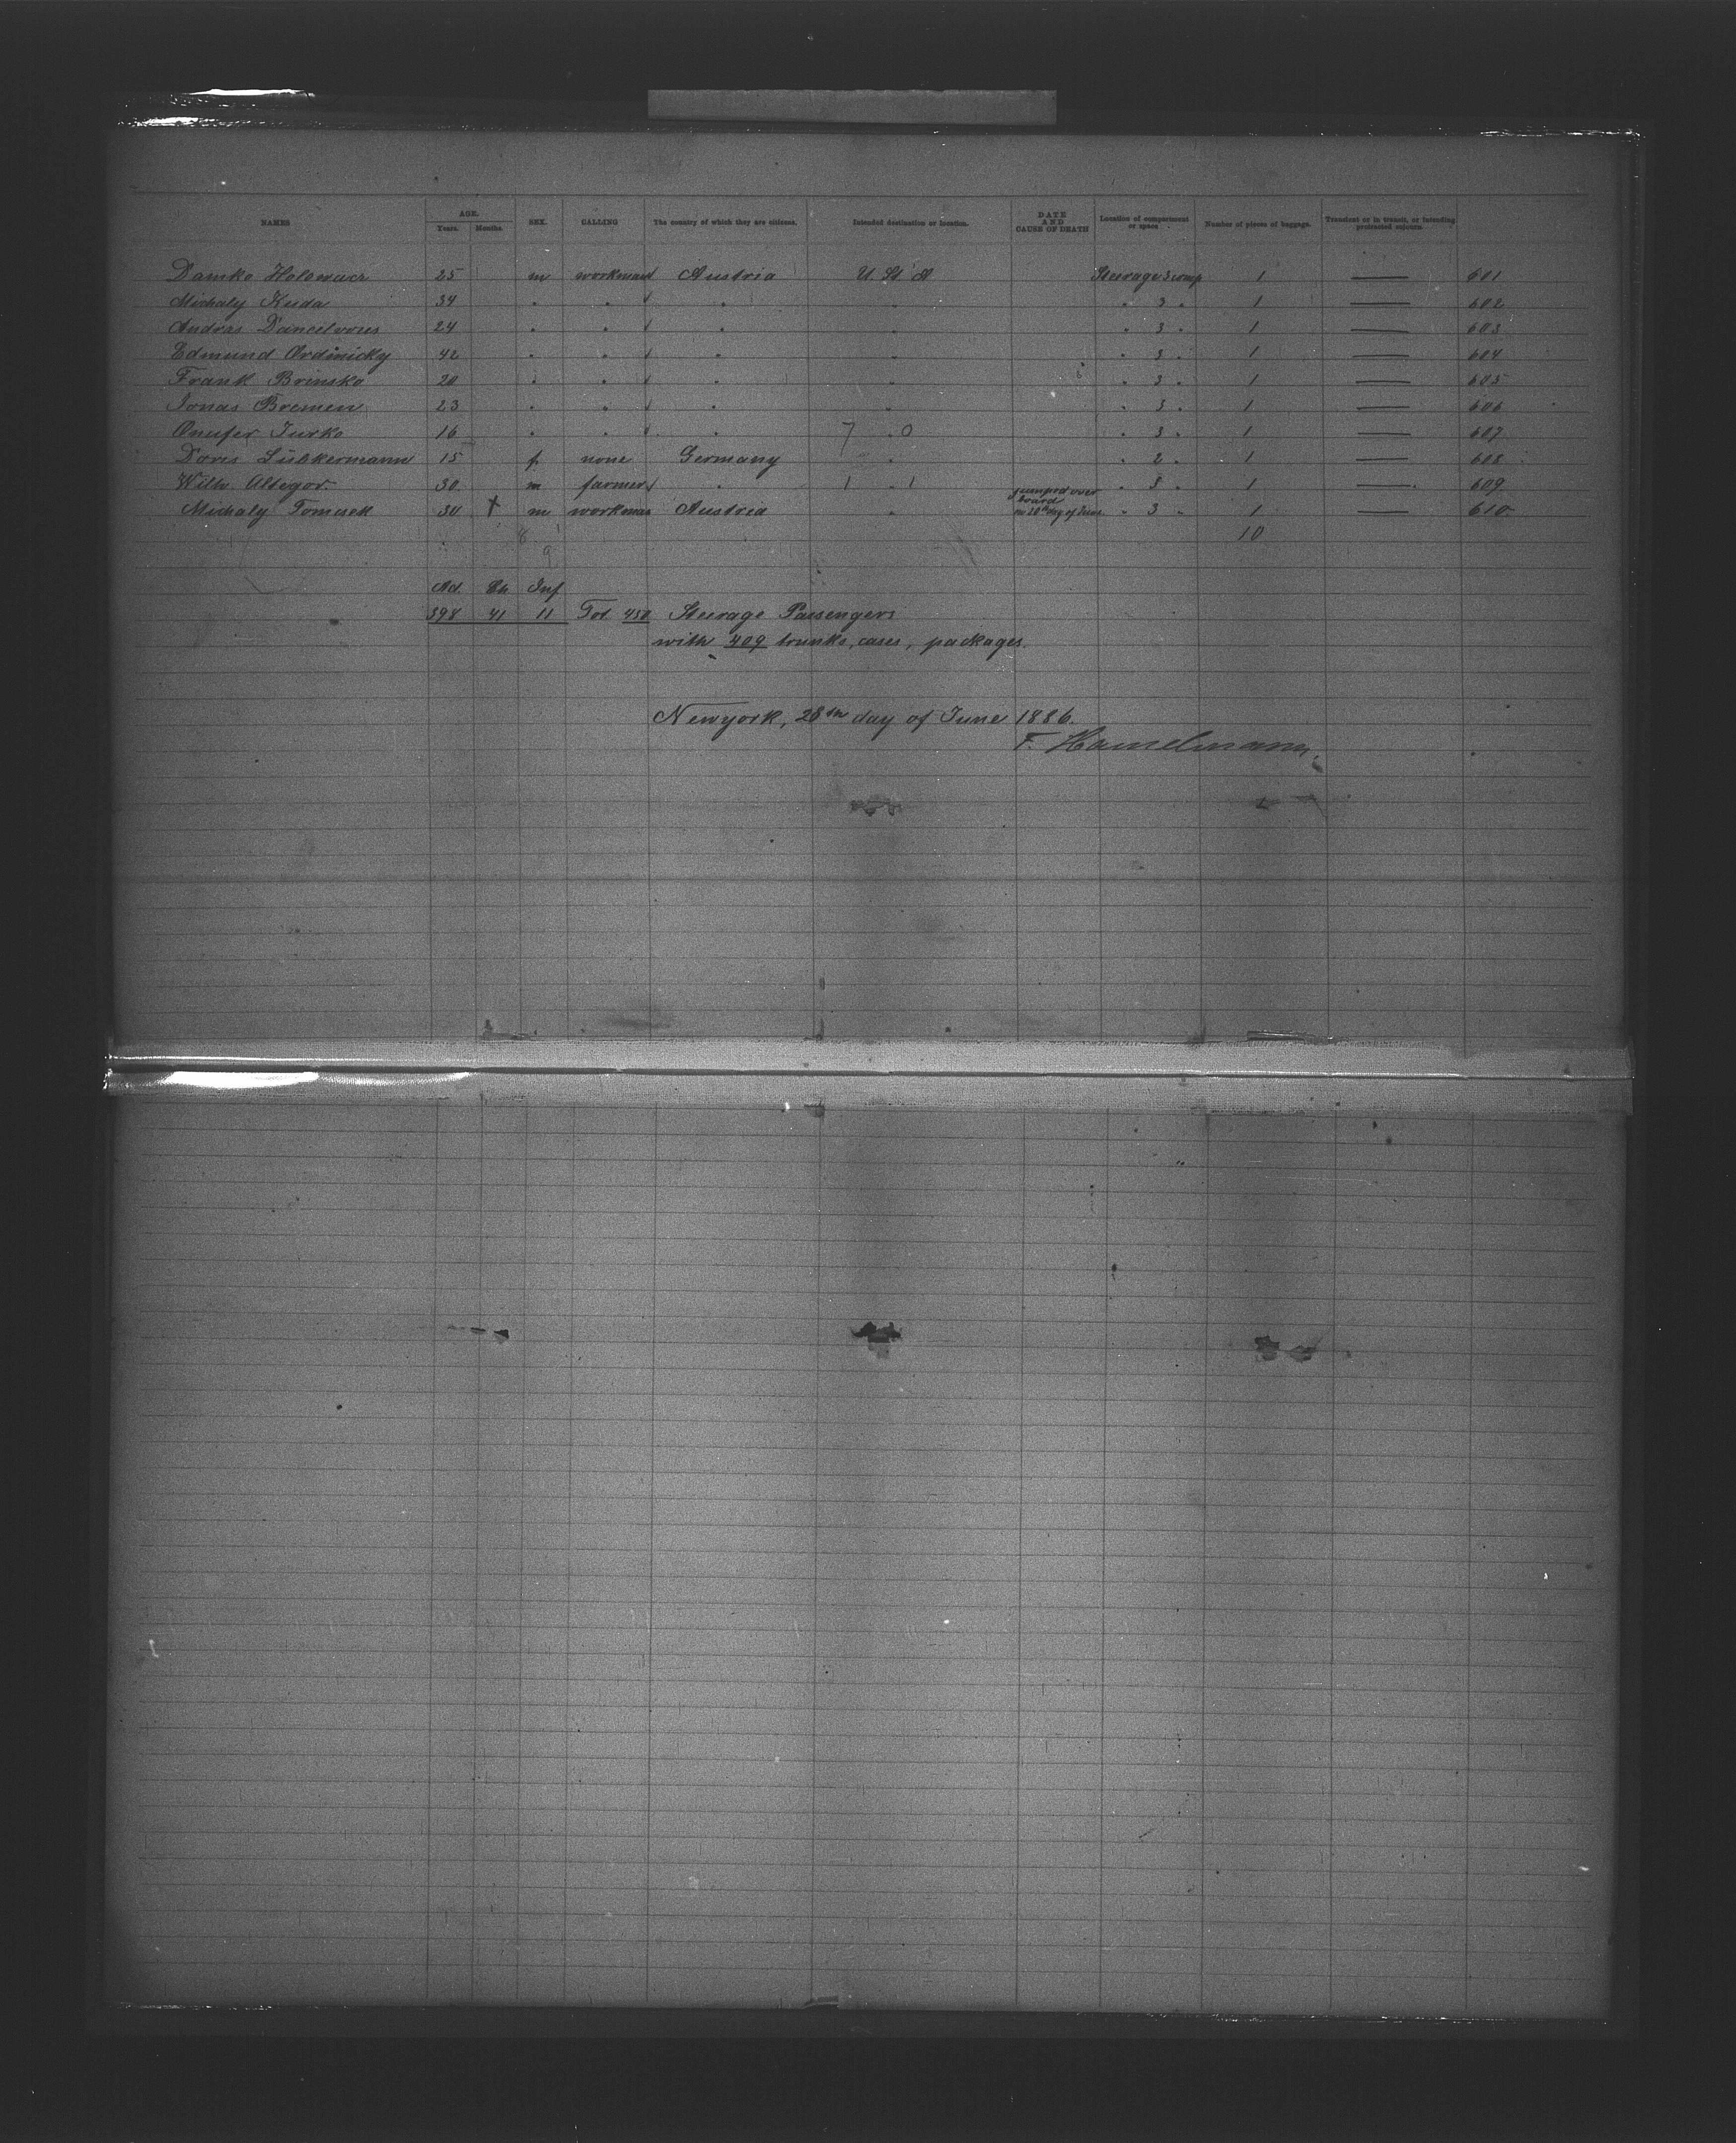 NAMES AGE. SEX. CALLING The country of which they are citizens. Intended destination or location. DATE AND CAUSE OF DEATH Location of compartment or space Number of pieces of baggage. Transient or in transit, or intending protracted sojourn
Years. Months.
Damko Holowacz 25 m workman Austria U St A Steerage 3 comp 1 — 601
Michaly Kuda 34 " " " " " 3 " 1 — 602
Andras 24 " " " " " 3 " 1 — 603
Edmund Ordinicky 42 " " " " " 3 " 1 — 604
Frank Brinsko 20 " " " " " 3 " 1 — 605
Jonas Bremen 23 " " " " " 3 " 1 — 606
Onufer Jurko 16 " " " 7 " 0 " 3 " 1 — 607
Doris Lübkermann 15 f. none Germany " " 2 " 1 — 608
Wilh. Altegor. 30 m farmer " 1 " 1 " 3 " 1 — 609
Michaly Tomcsek 30 † m workman Austria " jumped over board on 20th day of June " 3 " 1 — 610
10
Ad. Ch Inf
398 41 11 Tot 450 Steerage Passengers
with 409 trunks, cases, packages.
Newyork, 28th day of June 1886.
F. Hamelmann.